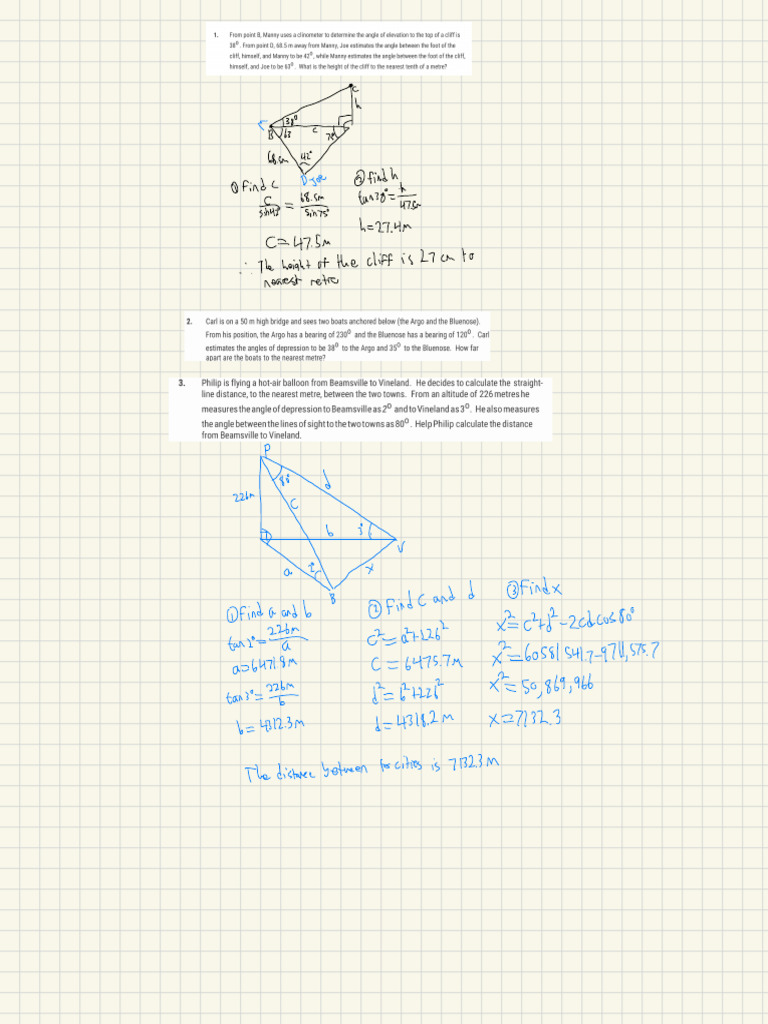 1. From point B, Manny uses a clinometer to determine the angle of elevation to the top of a cliff is
30⁰. From point D, 68.5 m away from Manny, Joe estimates the angle between the foot of the
cliff, himself, and Manny to be 42⁰, while Manny estimates the angle between the foot of the cliff,
himself, and Joe to be 63⁰. What is the height of the cliff to the nearest tenth of a metre?
C
h
30°
B
63
C
75
68.5m
42°
D Joe
① Find C
C/sin42° = 68.5m/sin75°
C = 47.5m
② find h
tan30° = h/47.5m
h = 27.4m
∴ The height of the cliff is 27 cm to
nearest retre
2. Carl is on a 50 m high bridge and sees two boats anchored below (the Argo and the Bluenose).
From his position, the Argo has a bearing of 230⁰ and the Bluenose has a bearing of 120⁰. Carl
estimates the angles of depression to be 38⁰ to the Argo and 35⁰ to the Bluenose. How far
apart are the boats to the nearest metre?
3. Philip is flying a hot-air balloon from Beamsville to Vineland. He decides to calculate the straight-
line distance, to the nearest metre, between the two towns. From an altitude of 226 metres he
measures the angle of depression to Beamsville as 2⁰ and to Vineland as 3⁰. He also measures
the angle between the lines of sight to the two towns as 80⁰. Help Philip calculate the distance
from Beamsville to Vineland.
P
80°
d
226m
C
b
3°
V
a
2°
x
B
① Find a and b
tan2° = 226m/a
a = 6471.8m
tan3° = 226m/b
b = 4312.3m
② Find C and d
c² = a² + 226²
C = 6475.7m
d² = b² + 226²
d = 4318.2m
③ Find x
x² = c² + d² - 2cd cos80°
x² = 60581541.7 - 9711,575.7
x² = 50,869,966
x = 7132.3
The distance between cities is 7132.3 m